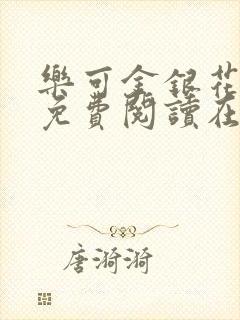 樂可金銀花
免費閱讀在
唐漪漪